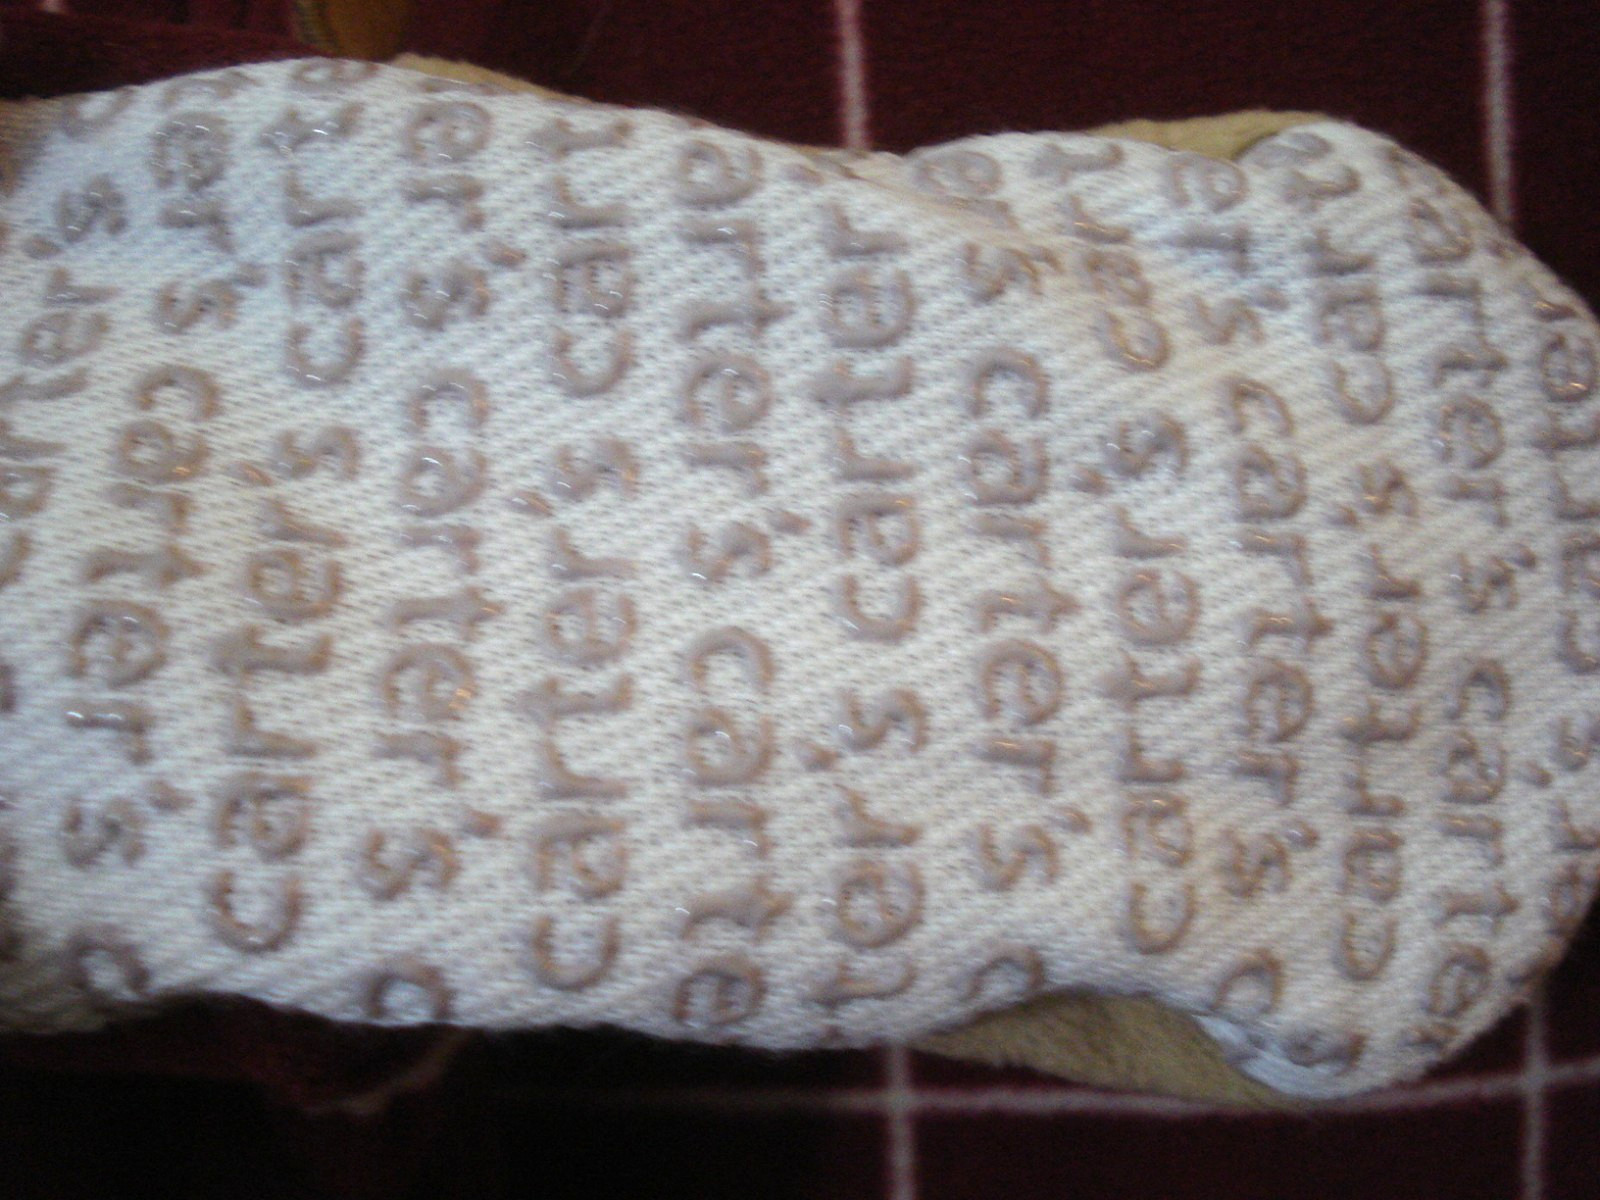 carter's
carter's
carter's
carter's carter's
carter's
carter's carter's
carter's carter's
carter's
carter's
carter's
carter's
carter's carter's